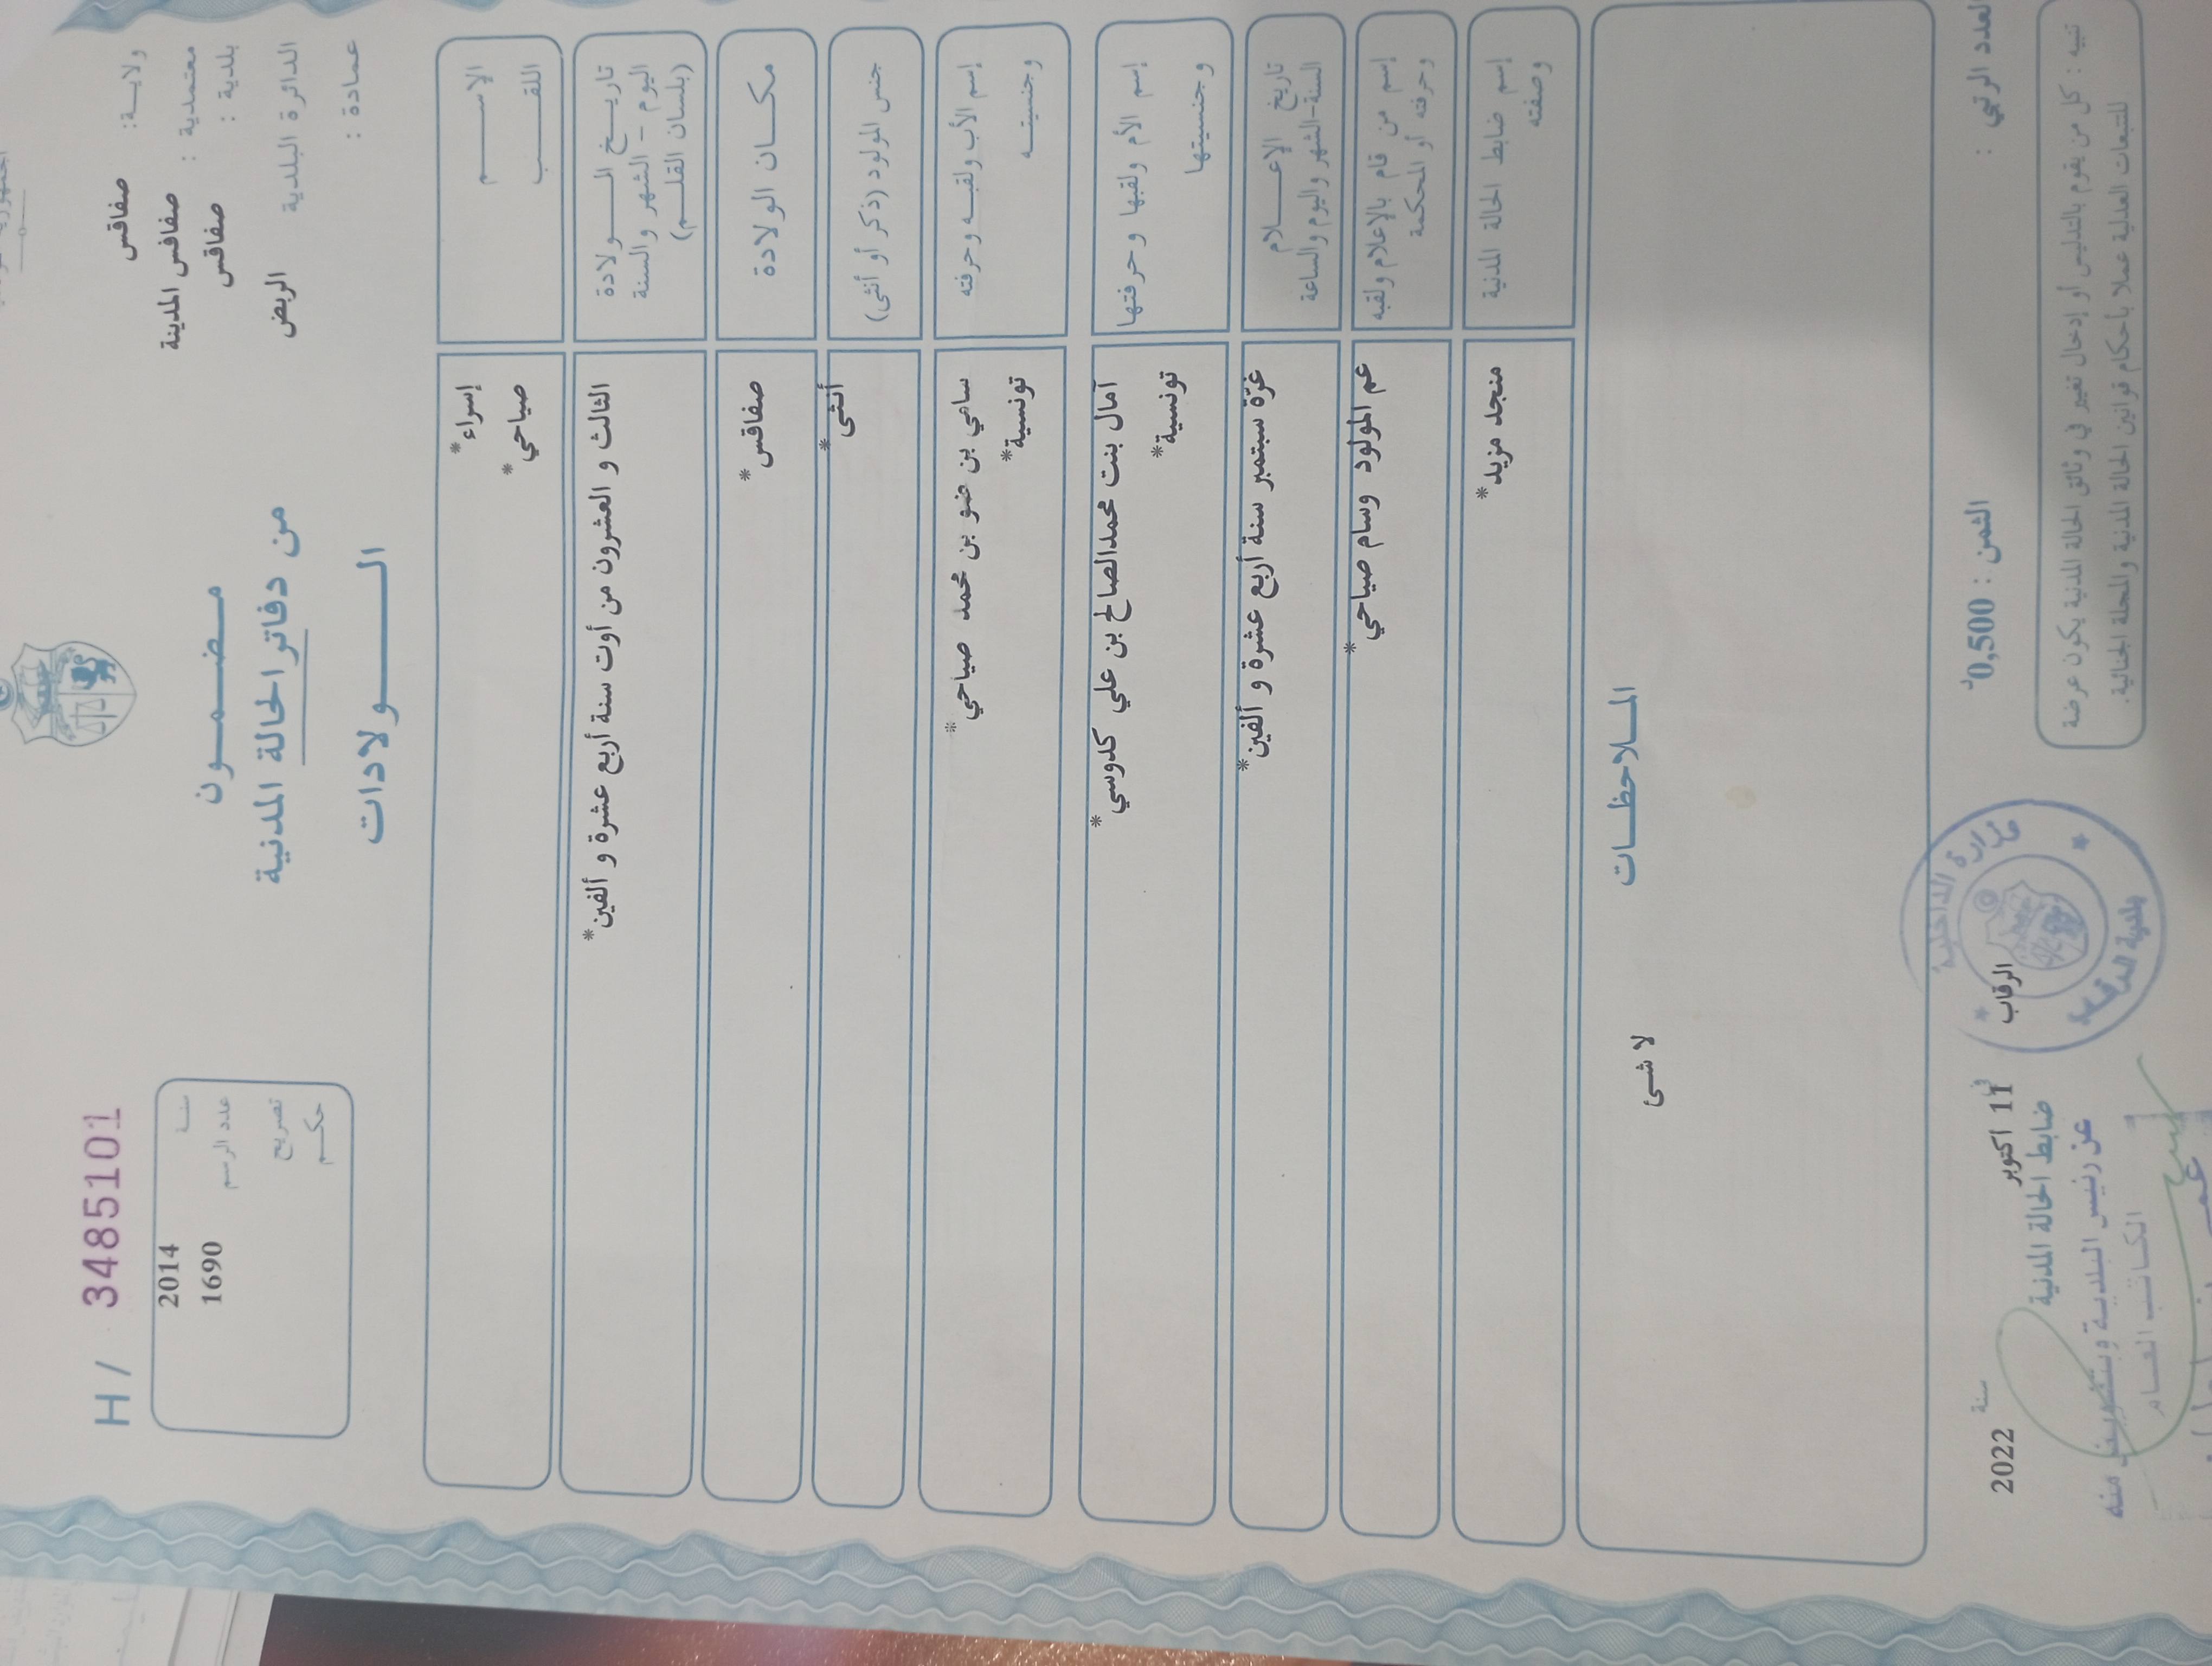 ولايـة: صفاقس
معتمدية : صفاقس المدينة
بلدية : صفاقس
الدائرة البلدية الربض
عمادة :
مـضـمـون
من دفاتر الحالة المدنية
الـــولادات
H / 3485101
سنـة 2014
عدد الرسم 1690
تصريح
حكـم
الاســـم إسراء*
اللقـــب صياحي*
تاريـخ الــولادة الثالث و العشرون من أوت سنة أربع عشرة و ألفين*
اليوم - الشهر والسنة
(بلسان القلـم)
مكـــان الولادة صفاقس*
جنس المولود (ذكر أو أنثى) أنثى*
إسم الأب ولقبـه وحرفته سامي بن ضو بن محمد صياحي*
وجنسيتـه تونسية*
إسم الأم ولقبها وحرفتها آمال بنت محمدالصالح بن علي كدوسي*
وجنسيتها تونسية*
تاريخ الإعـــلام غرّة سبتمبر سنة أربع عشرة و ألفين*
السنة-الشهر واليوم والساعة
إسم من قام بالإعلام ولقبه عم المولود وسام صياحي*
وحرفته أو المحكمة
إسم ضابط الحالة المدنية منجد مزيد*
وصفته
المـلاحظـات
لا شئ
العدد الرتبي :
الثمن : 0,500د
الرقاب في 11 اكتوبر سنة 2022
ضابط الحالة المدنية
عن رئيس البلدية وبتفويض منه
الكاتب العام
تنبيه : كل من يقوم بالتدليس أو إدخال تغيير في وثائق الحالة المدنية يكون عرضة
للتتبعات العدلية عملا بأحكام قوانين الحالة المدنية والمجلة الجنائية.
وزارة الداخلية
بلدية الرقاب